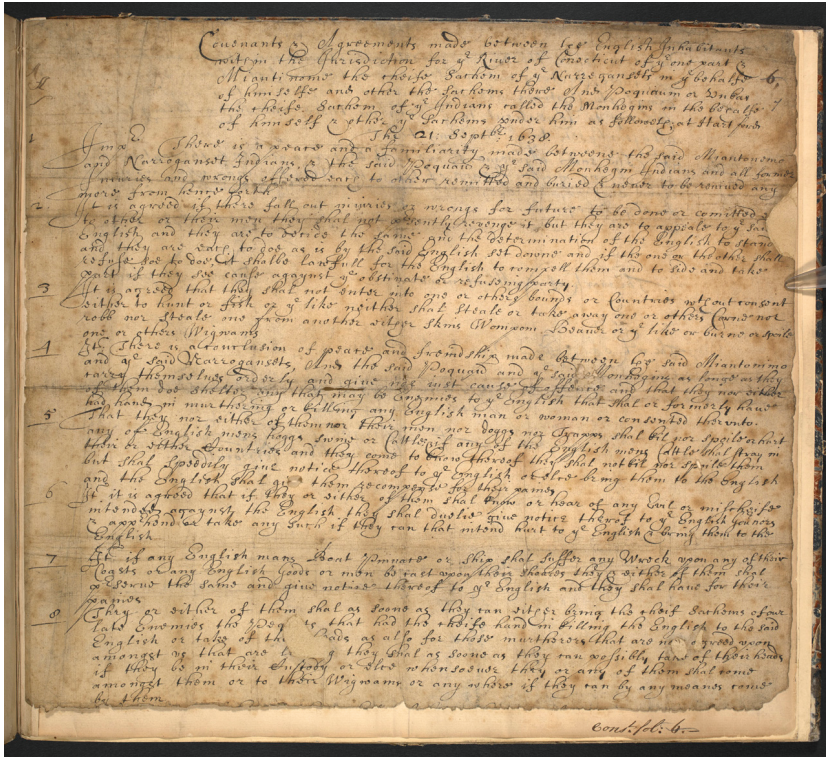 Covenants & Agreements made between the English Inhabitants
within the Jurisdiction for ye River of Conecticut of ye one part &
Miantinome the cheife Sachem of ye Narregansets in ye behalfe
of himselfe and other the Sachems there And Poquaum or Vnkas
the cheife Sachem of ye Indians called the Monhogins in the behalfe
of himself & other ye Sachems vnder him as followeth at Hartford
The 21: Septbr 1638
1 There is a peace and a familiarity made betweene the said Miantonimo
and Narroganset Indians & the said Poquaum & ye said Monhogin Indians and all former
iniuries and wrongs offered each to other remitted and buried & neuer to be renued any
more from henceforth
2 It is agreed if there fall out iniuries or wrongs for future to be done or comitted
to other or their men they shall not presently revenge it but they are to appeale to ye
English and they are to decide the same and the determination of the English to stand
and they are each to doe as is by the said English set downe and if the one or the other shall
refuse soe to doe it shalbe lawfull for the English to compell them and to side and take
part if they see cause against ye obstinate or refusing party
3 It is agreed that they shall not enter into one or others bounds or Countries without consent
either to hunt or fish or ye like neither shal steale or take away one or others Corne nor
robb nor steale one from another either skins Wompom Beauer or ye like or burne or spoile
one or others Wigwams
4 It. There is a conclusion of peace and frendship made between the said Miantonimo
and ye said Narrogansets And the said Poquaum and ye said Monhogins as longe as they
carry themselves orderly and give noe iust cause of offence and that they nor either
of them doe shelter any that may be Enemies to ye English that shal or formerly have
had hand in murthering or killing any English man or woman or consented therunto
5 That they nor either of them nor their men nor doggs nor Trapps shal kil nor spoile or hurt
any of English mens hoggs swine or Cattle if any of the English mens Cattle shal stray in
their or either Countries and they come to know thereof they shal not kil nor spoile them
but shal speedily give notice thereof to ye English or else bring them to the English
and the English shal them recompence for their paines
6 It. it is agreed that if they or either of them shal know or hear of any Evil or mischeife
intended against the English they shal duelie give notice therof to ye English
& apprehend & take any such if they can that intend hurt to ye English & bring them to the
English
7 It. if any English mans Boat Pinnace or Ship shal suffer any Wreck vpon any of their
Coasts or any English goods or men be cast vpon their shoares they & either of them shal
preserue the same and give notice thereof to ye English and they shal have for their
paines
8 They or either of them shal as soone as they can either bring the cheif Sachems of our
late Enemies the that had the cheife hand in killing the English to the said
English or take of as also for those murtherers that are now agreed vpon
amongst vs that are they shal as soone as they can possibly take of their heads
if they be in their Custody or else whensoever they or any of them shal come
amongst them or to their Wigwams or any where if they can by any meanes come
by them